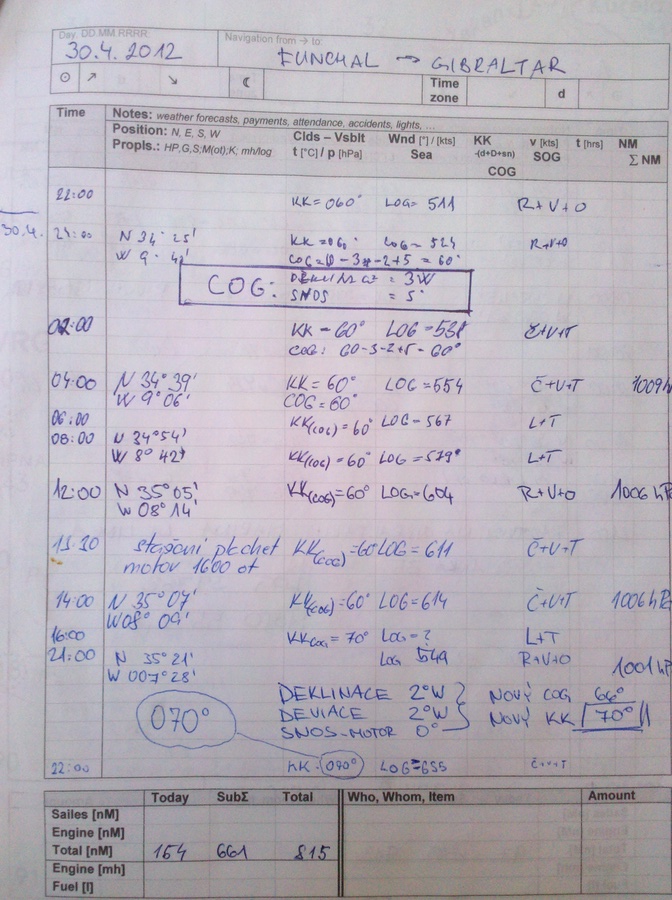 Day, DD.MM.RRRR: Navigation from → to:
30.4.2012 FUNCHAL → GIBRALTAR
Time zone d
Time Notes: weather forecasts, payments, attendance, accidents, lights, ...
Position: N, E, S, W Clds - Vsblt Wnd [°] / [kts] KK v [kts] t [hrs] NM
Propls.: HP,G,S;M(ot);K; mh/log t [°C] / p [hPa] Sea -(d+D+sn) SOG Σ NM
COG
KK = 060° LOG = 511 R+V+O
30.4. 24:00 N 34° 25' KK = 060° LOG = 524 R+V+O
W 9°
COG: DEKLINACE = 3W
SNOS = 5°
02:00 KK = 60° LOG = 538 Č+V+T
COG: 60-3-2+5 = 60°
04:00 N 34° 39' KK = 60° LOG = 554 Č+V+T 1009h
W 9° 06' COG = 60°
06:00 KK(COG) = 60° LOG = 567 L+T
08:00 N 34° 54'
W 8° 42' KK(COG) = 60° LOG = 579 L+T
12:00 N 35° 05' KK(COG) = 60° LOG = 604 R+V+O 1006 hP
W 08° 14'
13:30 stáčání plachet KK(COG) = 60 LOG = 611 Č+V+T
motor 1600 ot
14:00 N 35° 07' KK(COG) = 60° LOG = 614 Č+V+T 1006 hP
W 08° 09'
16:00 KK COG = 70° LOG = ? L+T
21:00 N 35° 21' LOG 549 R+V+O 1001 hP
W 007° 28'
DEKLINACE 2°W NOVÝ COG 66°
070° DEVIACE 2°W NOVÝ KK 70°
SNOS-MOTOR 0°
22:00 KK = 070° LOG = 655 Č+V+T
Today SubΣ Total Who, Whom, Item Amount
Sailes [nM]
Engine [nM]
Total [nM] 154 661 815
Engine [mh]
Fuel [l]